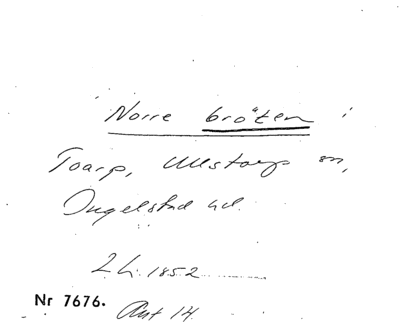 Norre bröten i
Toarp, Ullstorp sn,
Ingelstad hd.
L.L. 1852
Nr 7676.
Aut 14